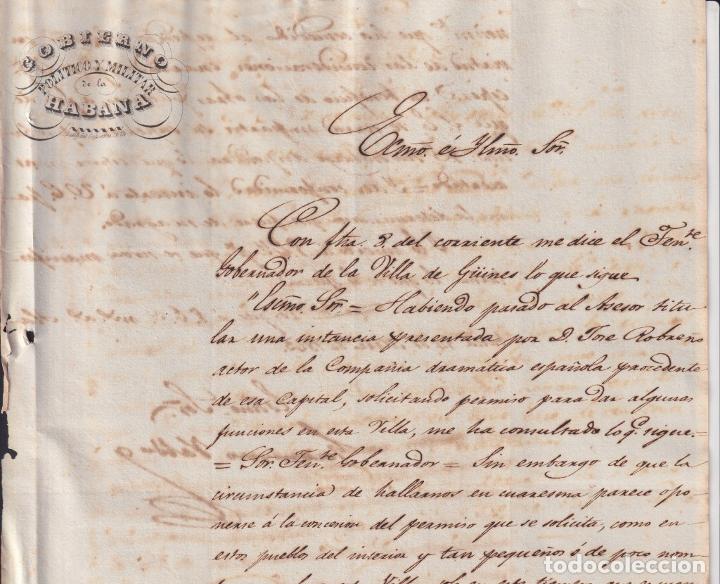 GOBIERNO
POLITICO Y MILITAR
de la
HABANA
Ecmo. é Ylmo. Sor.
Con fha. 3. del corriente me dice el Tente.
Gobernador de la Villa de Güines lo que sigue
"Escmo. Sor. = Habiendo pasado al Asesor titu
lar una instancia presentada por D. Jose Robreño
actor de la Compañia dramática española procedente
de esa Capital, solicitando permiso para dar algunas
funciones en esta Villa, me ha consultado lo q. sigue=
= Sor. Tente. Gobernador = Sin embargo de que la
circunstancia de hallarnos en cuaresma parece opo
nerse á la concesion del permiso que se solicita, como en
estos pueblos del interior y tan pequeños ó de poco nom
todocoleccion.net